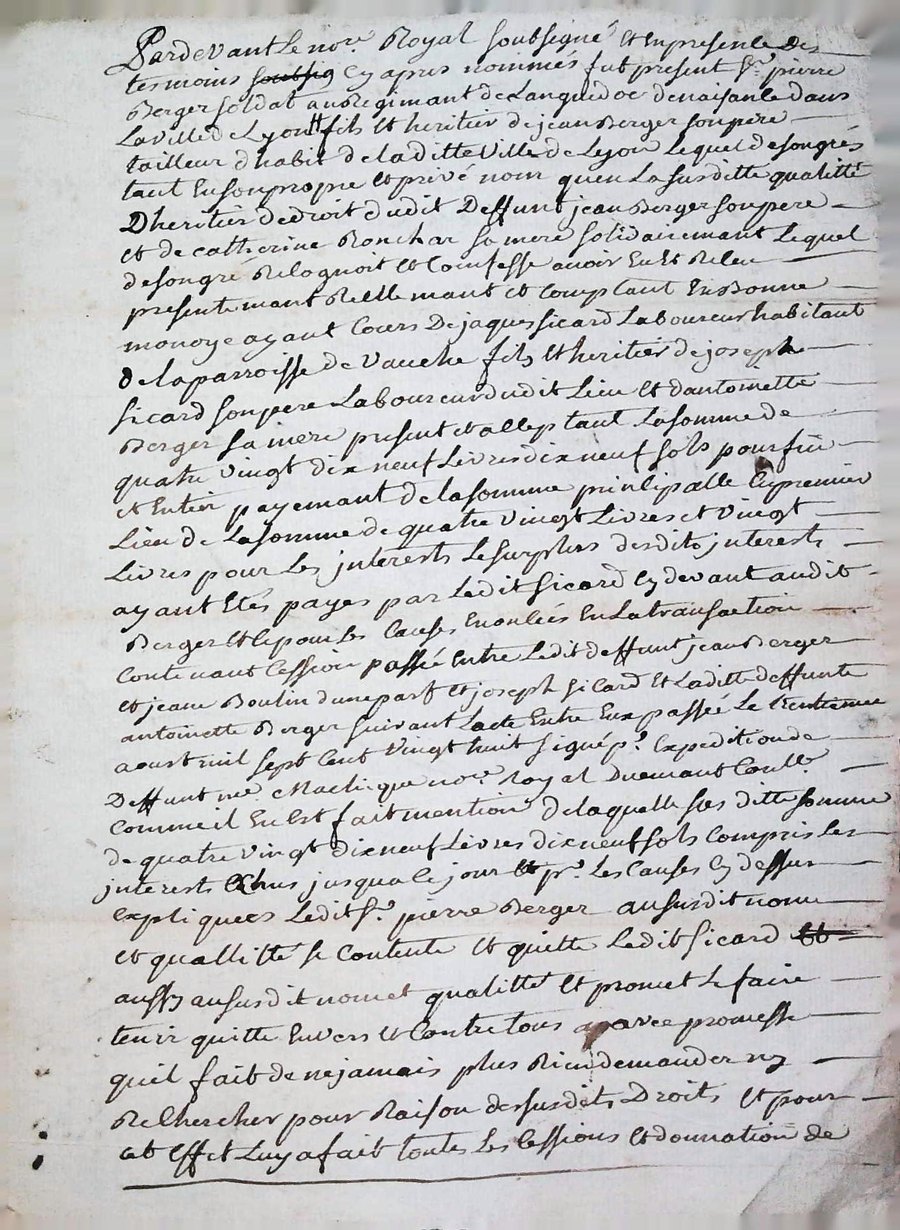 Pardevant Le nore. Royal soubsigné et en presence des
tesmoins soubsig cy apres nommés fut present Sr. pierre
Berger soldat au Regimant de Languedoc de naisance dans
La ville de Lyon fils et heritier de jean Berger son pere
tailleur d habit de laditte ville de Lyon Lequel de son grés
tant en son propre et privé nom quen La susditte qualitté
D heritier de droit dudit Deffunt jean Berger son pere
et de catherine Ronchar sa mere solidairemant Lequel
de son gre Recognoit et Comfesse avoir Eu et Receu
presentemant Reellemant et Comptant En Bonne
monoye ayant Cours De jaques sicard Laboureur habitant
de la parroisse de Vauche fils et heritier de joseph
sicard son pere Laboureur dudit Lieu et dantoinette
Berger sa mere present et acceptant La somme de
quatre vingt dix neuf Livres dix neuf sols pour fin
et Entier payemant de la somme principalle En premier
Lieu de La somme de quatre vingt Livres et vingt
Livres pour Les interests Le surplus desdits interests
ayant Etés payes par Ledit sicard cy devant audit
Berger et ce pour les Causes Enoncées En La transaction
Contenant Cession passée Entre Ledit deffunt jean Berger
et jeane Boulin dune part et joseph sicard et Laditte deffunte
antoinette Berger suivant Lacte Entre Eux passée Le trentieme
aoust mil sept Cent vingt huit signé pr. Expedition de
Deffunt me. nore. royal Duemant Conllé.
Comme il En Est fait mention de laquelle ditte somme
de quatre vingt dix neuf Livres dix neuf sols Compris Les
interests Echus jusqua Ce jour et pr. Les Causes cy dessus
Expliquées Ledit Sr. pierre Berger au susdit nom
et quallitté se Contente et quitte Ledit sicard et
aussy au susdit nom et qualitté et promet Le faire
tenir quitte Envers et Contre tous avec promesse
quil fait de ne jamais plus Rien demander ny
Rechercher pour Raison des susdits Droits et pour
cet Effet Luy a fait toutes Les Cessions et donnation de